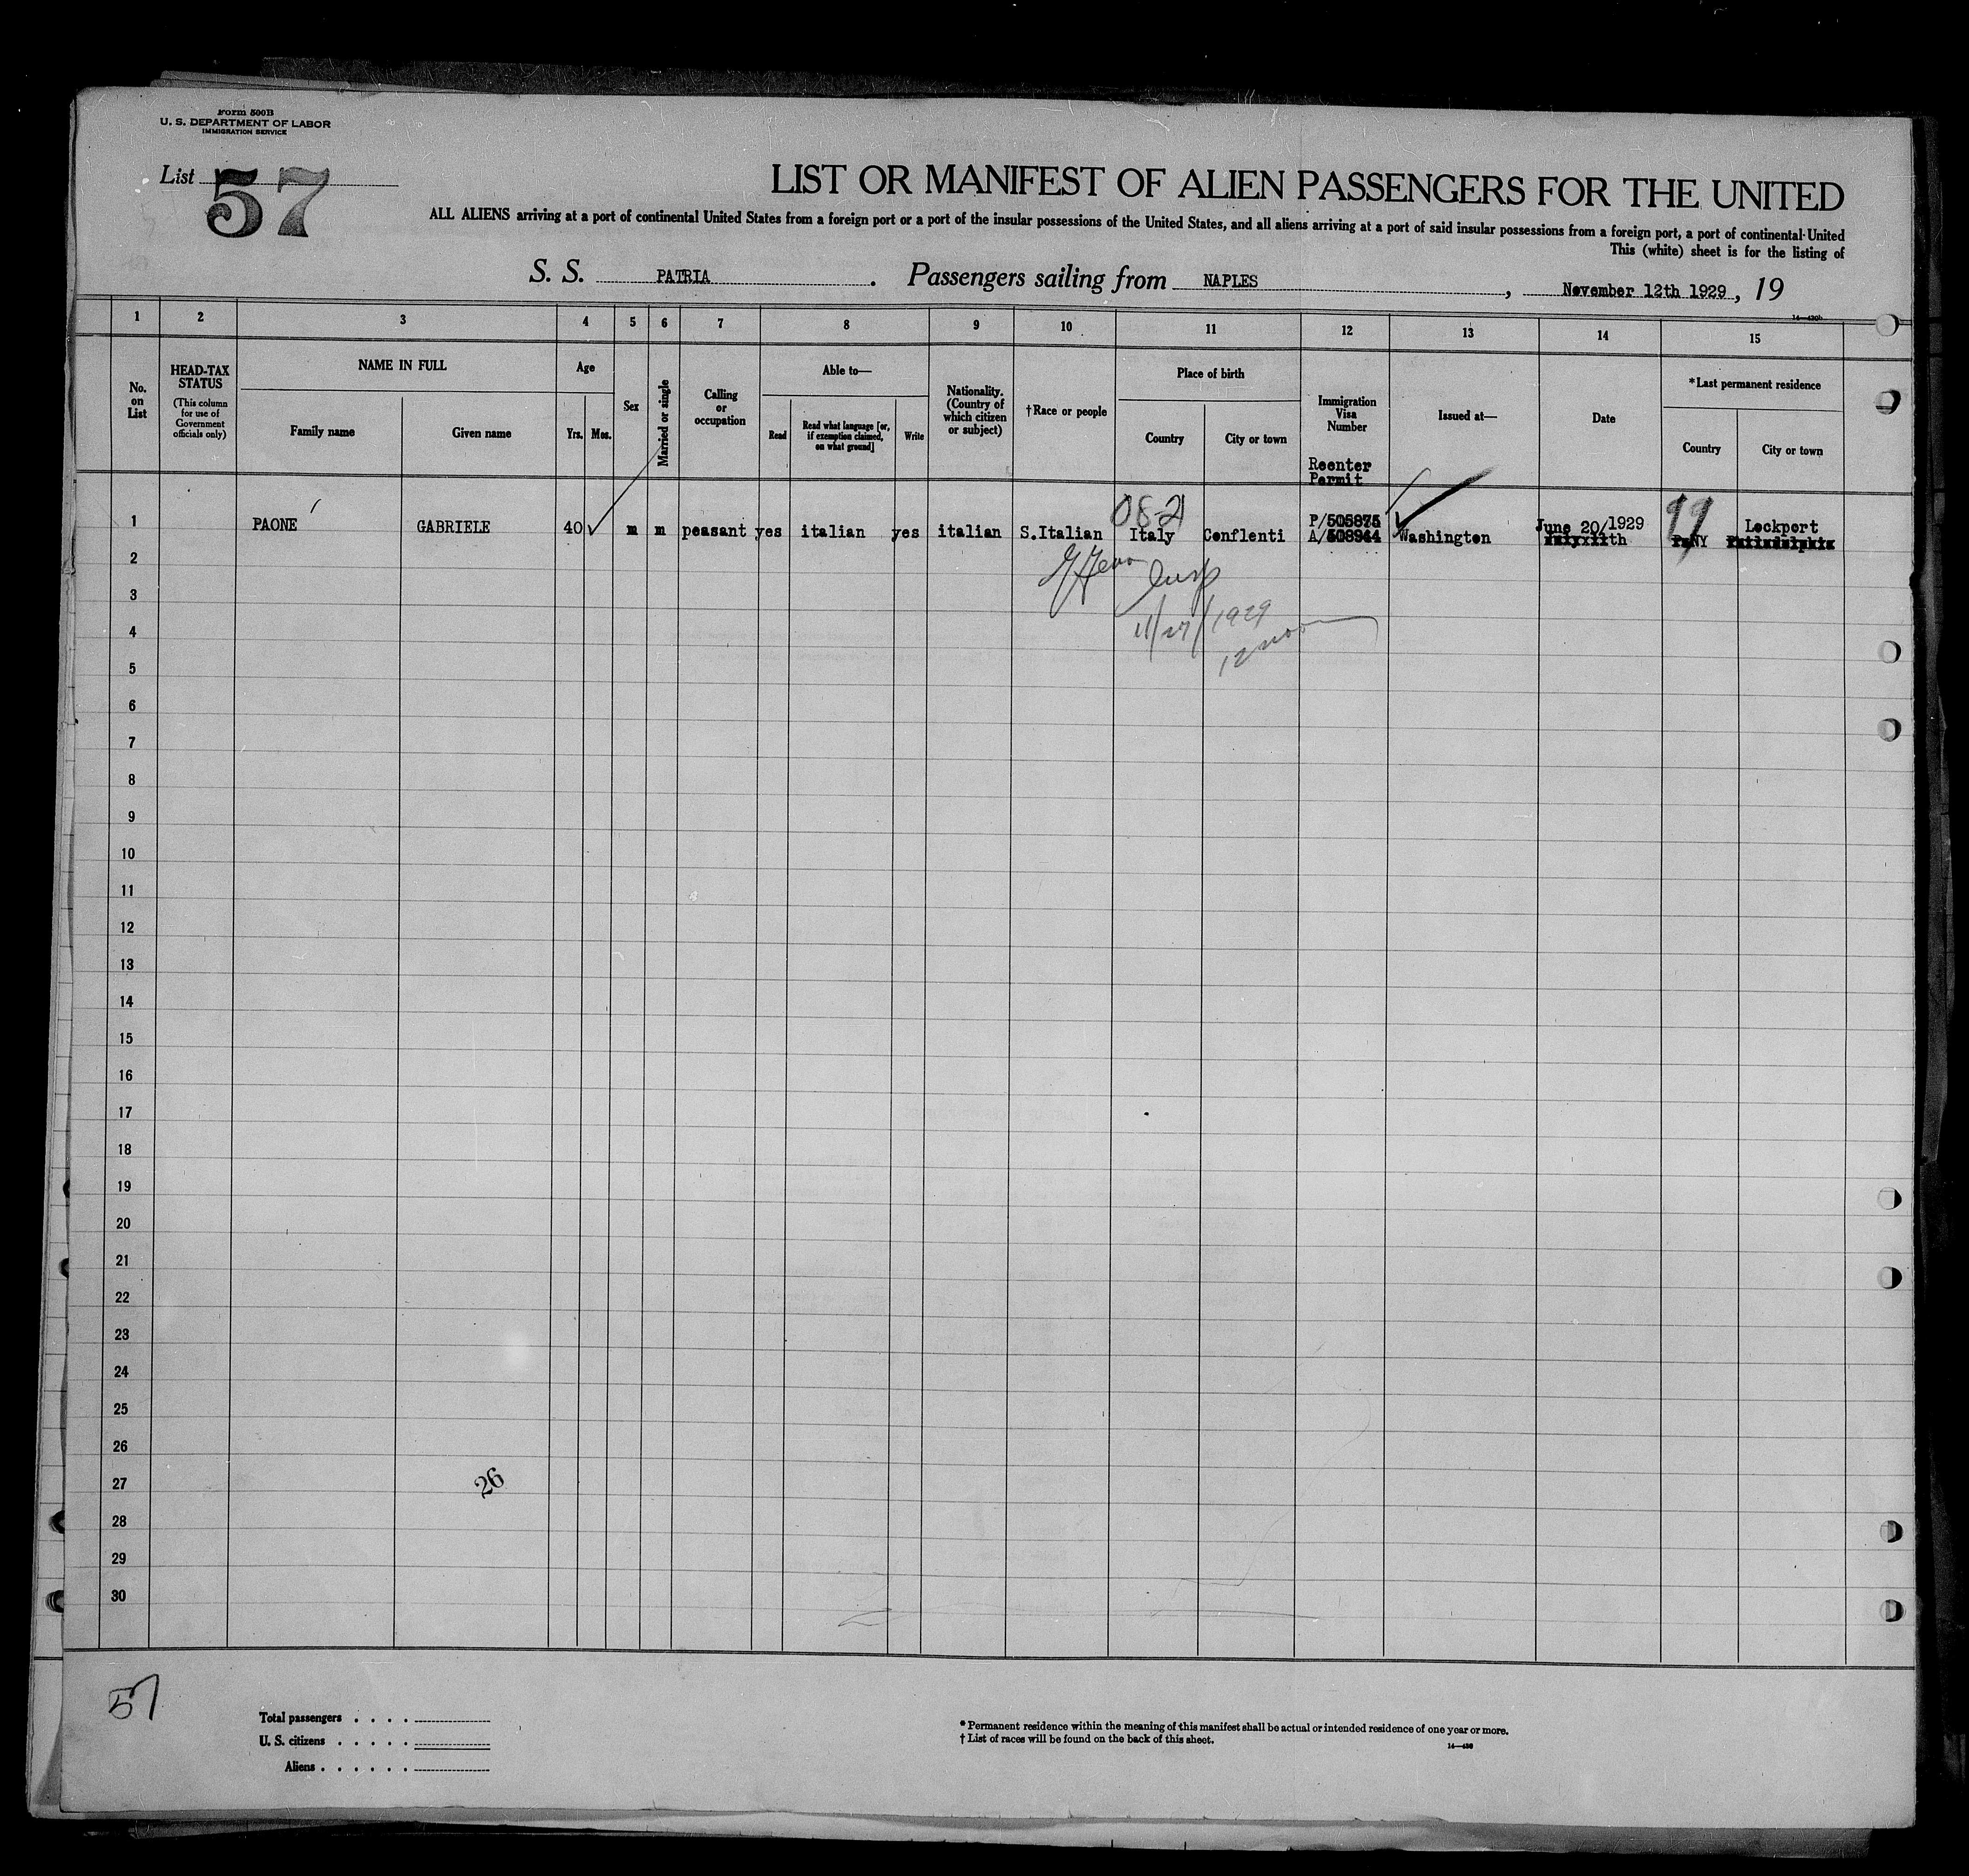 Form 500B
U. S. DEPARTMENT OF LABOR
IMMIGRATION SERVICE
List 57
LIST OR MANIFEST OF ALIEN PASSENGERS FOR THE UNITED
ALL ALIENS arriving at a port of continental United States from a foreign port or a port of the insular possessions of the United States, and all aliens arriving at a port of said insular possessions from a foreign port, a port of continental United
This (white) sheet is for the listing of
S. S. PATRIA. Passengers sailing from NAPLES, November 12th 1929, 19
1 2 3 4 5 6 7 8 9 10 11 12 13 14 15
No. on List
HEAD-TAX STATUS
(This column for use of Government officials only)
NAME IN FULL
Family name Given name
Age
Yrs. Mos.
Sex
Married or single
Calling or occupation
Able to—
Read
Read what language [or, if exemption claimed, on what ground]
Write
Nationality. (Country of which citizen or subject)
†Race or people
Place of birth
Country City or town
Immigration Visa Number
Reenter Permit
Issued at—
Date
*Last permanent residence
Country City or town
08-21 99
P/505875 June 20/1929 Lockport
1 PAONE GABRIELE 40 m m peasant yes italian yes italian S.Italian Italy Conflenti A/508944 Washington th NY
2
Insp
3
11/27/1929
4
12 noon
5
6
7
8
9
10
11
12
13
14
15
16
17
18
19
20
21
22
23
24
25
26
27
26
28
29
30
57
Total passengers . . . .
U. S. citizens . . . . .
Aliens . . . . . .
* Permanent residence within the meaning of this manifest shall be actual or intended residence of one year or more.
† List of races will be found on the back of this sheet.